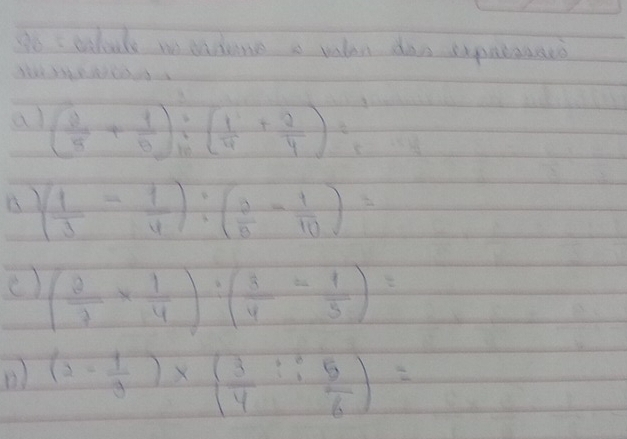 calcule no caderno o valor das expressões
numéricas.
a) (2/5 + 1/5) : (1/4 + 2/4) =
B) (1/3 - 1/4) : (2/5 - 1/10) =
c) (2/7 x 1/4) : (3/4 - 1/3) =
D) (2 - 1/3) x (3/4 : 5/6) =